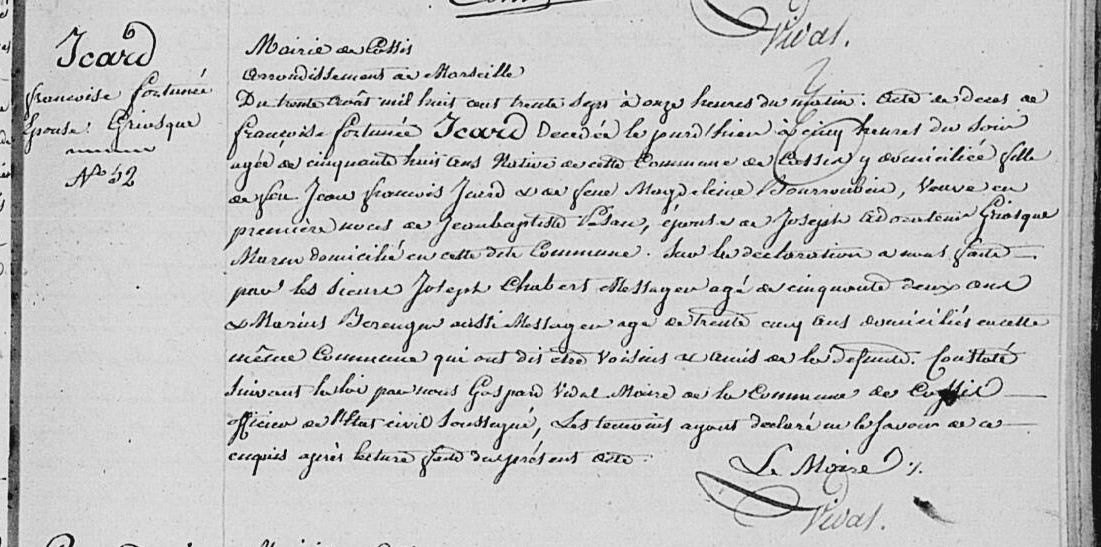 Vidal.
Icard
françoise fortunée
Épouse Griosque
N° 32
Mairie de Cassis
arrondissement de Marseille
Du trente août mil huit cent trente sept à onze heures du matin. Acte de Deces de
françoise fortunée Icard Decedée le jour d'hier à cinq heures du soir
agée de cinquante huit ans Native de cette Commune de Cassis y domiciliée fille
de feu Jean françois Icard & de feue Magdeleine, Veuve en
première noces de Jeanbaptiste, épouse de Joseph Griosque
Marin domicilié en cette dite Commune. Sur la declaration a nous faite
par les sieurs Joseph Chabert Messager agé de cinquante deux ans
& Marius Berenger aussi Messager agé de trente cinq ans domiciliés en cette
même Commune qui ont dit etre Voisins & amis de la defunte. Constaté
Suivant la loi par nous Gaspard Vidal Maire de la Commune de Cassis
officier de l'Etat civil Soussigné, Les temoins ayant declaré ne le savoir de ce
enquis après lecture faite du présent acte.
Le Maire
Vidal.